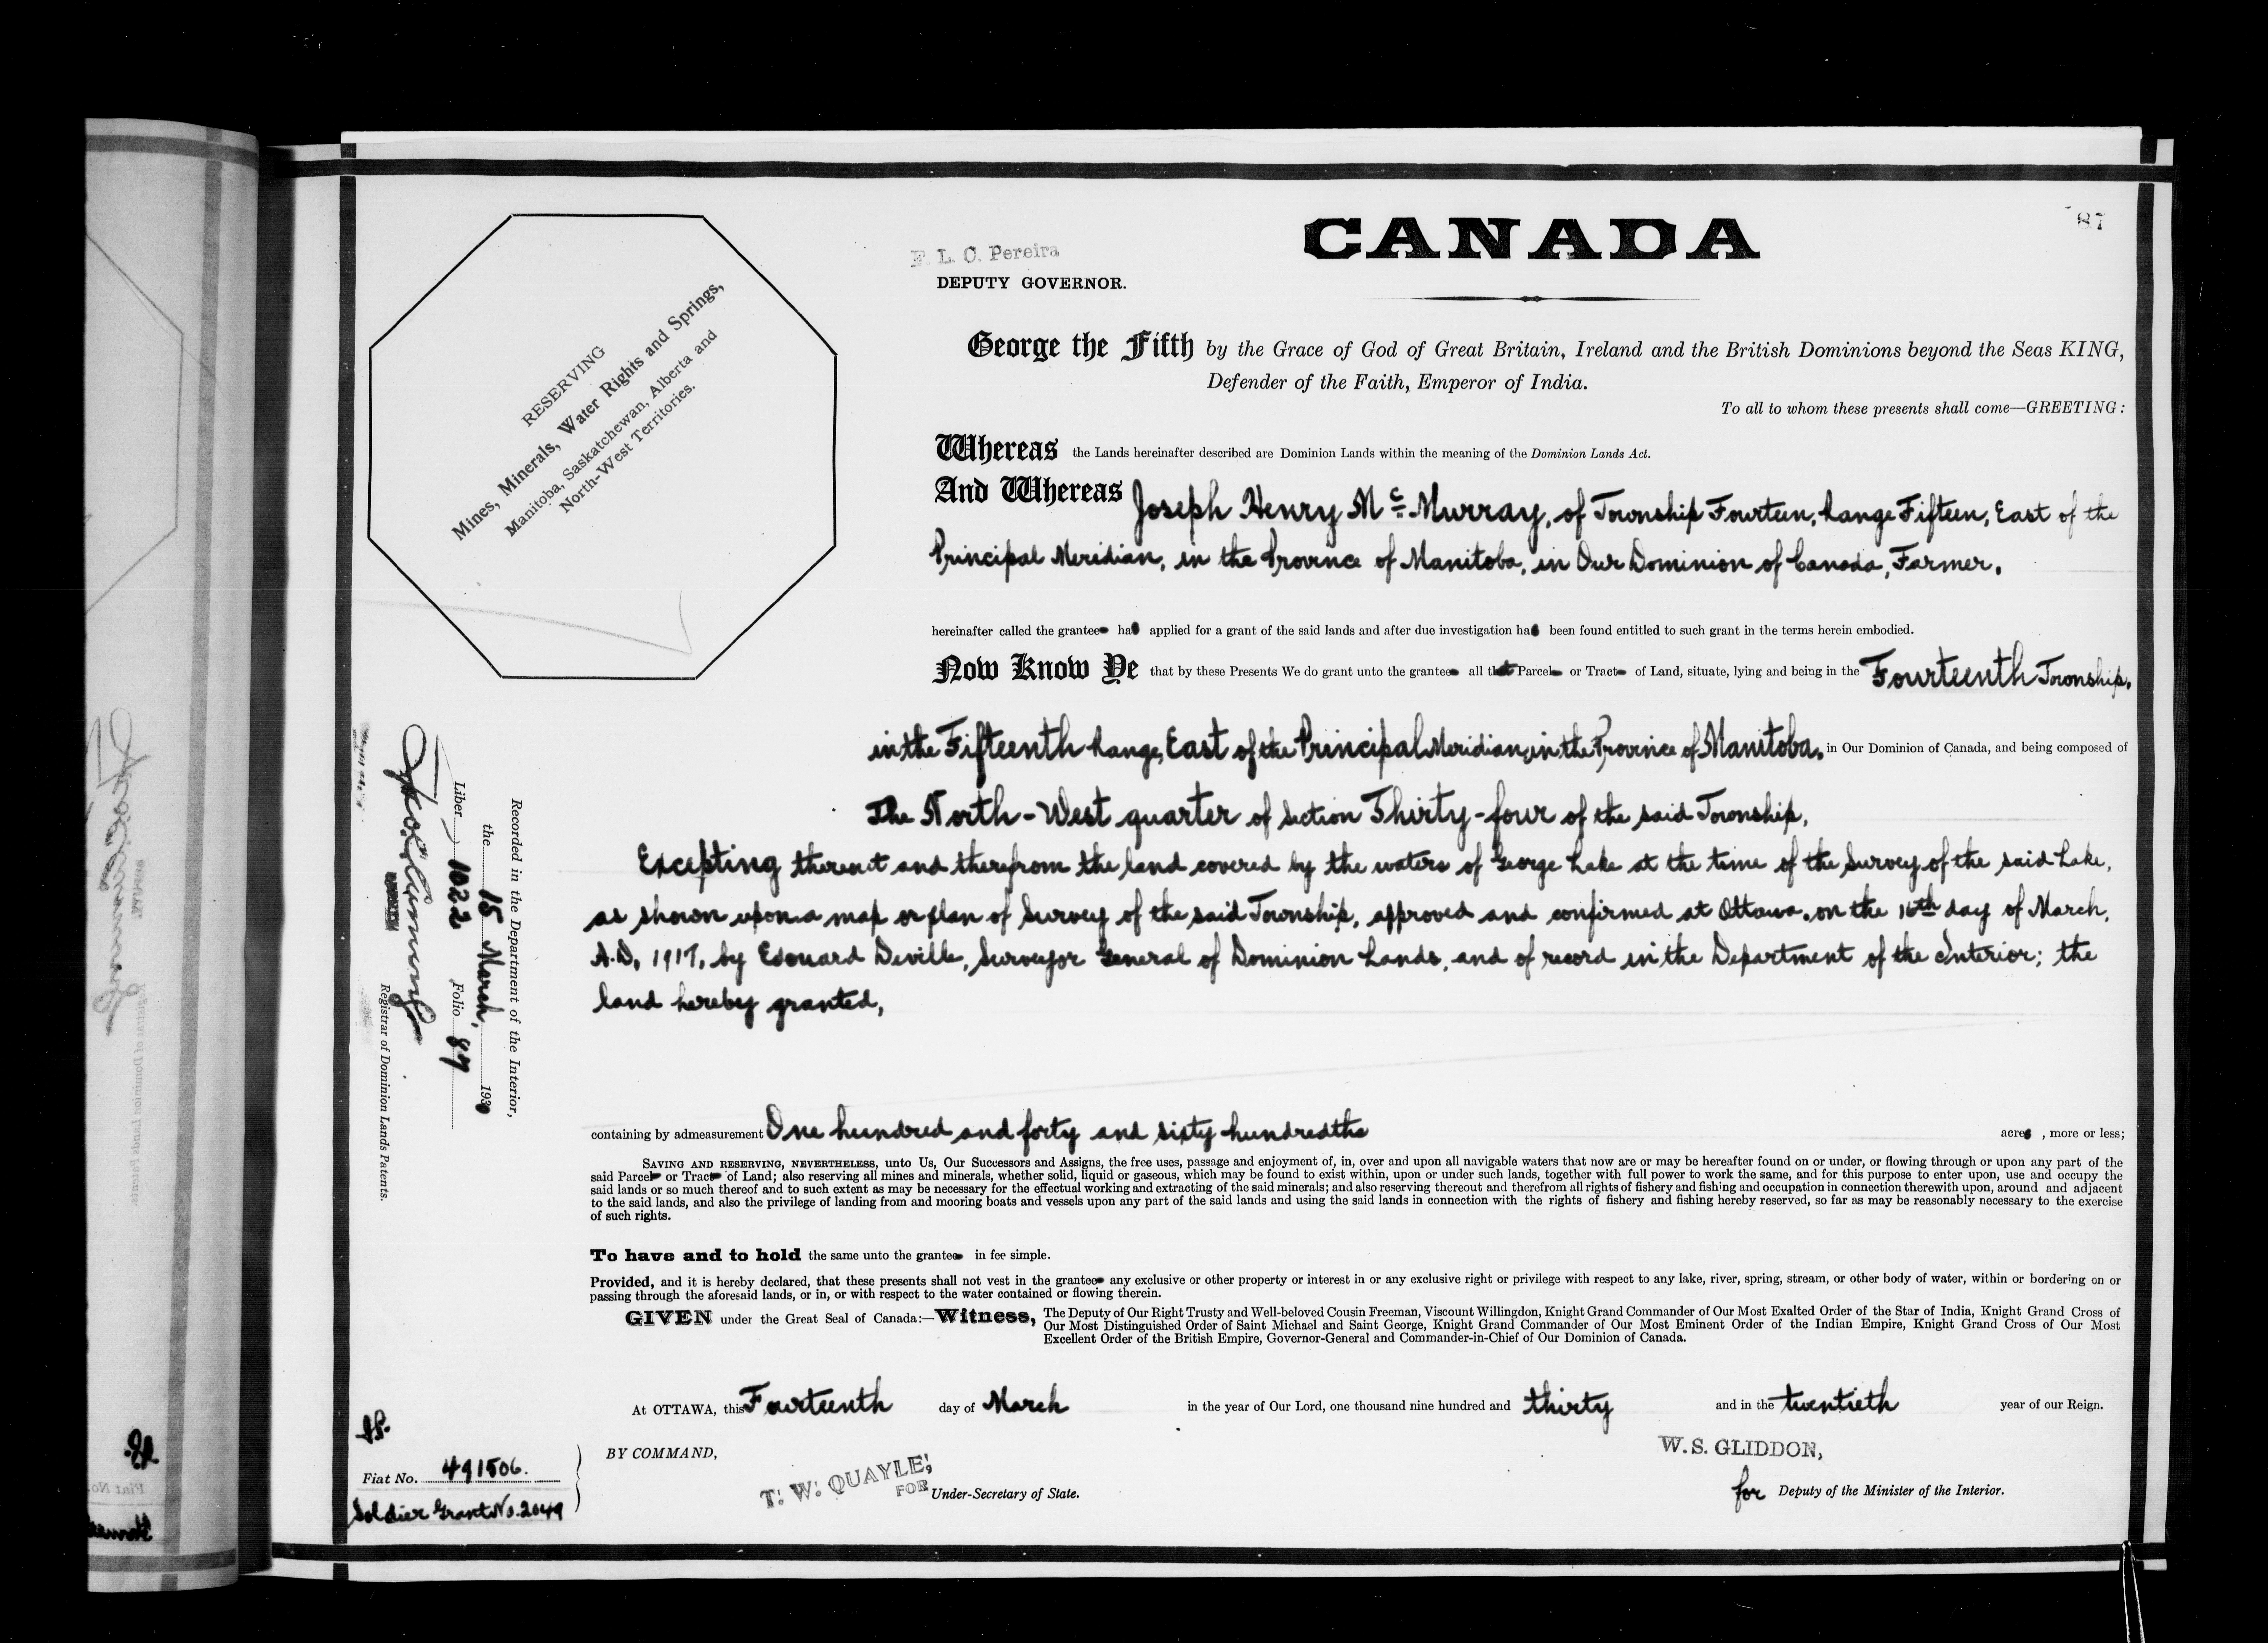 87
CANADA
F. L. C. Pereira
DEPUTY GOVERNOR.
RESERVING
Mines, Minerals, Water Rights and Springs,
Manitoba, Saskatchewan, Alberta and
North-West Territories.
George the Fifth by the Grace of God of Great Britain, Ireland and the British Dominions beyond the Seas KING,
Defender of the Faith, Emperor of India.
To all to whom these presents shall come—GREETING:
Whereas the Lands hereinafter described are Dominion Lands within the meaning of the Dominion Lands Act.
And Whereas Joseph Henry McMurray, of Township Fourteen, Range Fifteen, East of the
Principal Meridian, in the Province of Manitoba, in Our Dominion of Canada, Farmer.
hereinafter called the grantee has applied for a grant of the said lands and after due investigation has been found entitled to such grant in the terms herein embodied.
Now Know Ye that by these Presents We do grant unto the grantee all that Parcel or Tract of Land, situate, lying and being in the Fourteenth Township,
in the Fifteenth Range, East of the Principal Meridian, in the Province of Manitoba, in Our Dominion of Canada, and being composed of
The North-West quarter of Section Thirty-four of the said Township,
Excepting thereout and therefrom the land covered by the waters of George Lake at the time of the survey of the said Lake,
as shown upon a map or plan of Survey of the said Township, approved and confirmed at Ottawa, on the 16th day of March,
A.D. 1917, by Edouard Deville, Surveyor General of Dominion Lands, and of record in the Department of the Interior; the
land hereby granted,
containing by admeasurement One hundred and forty and sixty hundredths acres, more or less;
SAVING AND RESERVING, NEVERTHELESS, unto Us, Our Successors and Assigns, the free uses, passage and enjoyment of, in, over and upon all navigable waters that now are or may be hereafter found on or under, or flowing through or upon any part of the
said Parcel or Tract of Land; also reserving all mines and minerals, whether solid, liquid or gaseous, which may be found to exist within, upon or under such lands, together with full power to work the same, and for this purpose to enter upon, use and occupy the
said lands or so much thereof and to such extent as may be necessary for the effectual working and extracting of the said minerals; and also reserving thereout and therefrom all rights of fishery and fishing and occupation in connection therewith upon, around and adjacent
to the said lands, and also the privilege of landing from and mooring boats and vessels upon any part of the said lands and using the said lands in connection with the rights of fishery and fishing hereby reserved, so far as may be reasonably necessary to the exercise
of such rights.
To have and to hold the same unto the grantee in fee simple.
Provided, and it is hereby declared, that these presents shall not vest in the grantee any exclusive or other property or interest in or any exclusive right or privilege with respect to any lake, river, spring, stream, or other body of water, within or bordering on or
passing through the aforesaid lands, or in, or with respect to the water contained or flowing therein.
GIVEN under the Great Seal of Canada:—Witness, The Deputy of Our Right Trusty and Well-beloved Cousin Freeman, Viscount Willingdon, Knight Grand Commander of Our Most Exalted Order of the Star of India, Knight Grand Cross of
Our Most Distinguished Order of Saint Michael and Saint George, Knight Grand Commander of Our Most Eminent Order of the Indian Empire, Knight Grand Cross of Our Most
Excellent Order of the British Empire, Governor-General and Commander-in-Chief of Our Dominion of Canada.
At OTTAWA, this Fourteenth day of March in the year of Our Lord, one thousand nine hundred and thirty and in the twentieth year of our Reign.
BY COMMAND,
T. W. QUAYLE,
FOR Under-Secretary of State.
W. S. GLIDDON,
for Deputy of the Minister of the Interior.
Recorded in the Department of the Interior,
the 15 March, 1930
Liber 1022 Folio 87
Registrar of Dominion Lands Patents.
Fiat No. 491506.
Soldier Grant No. 2049